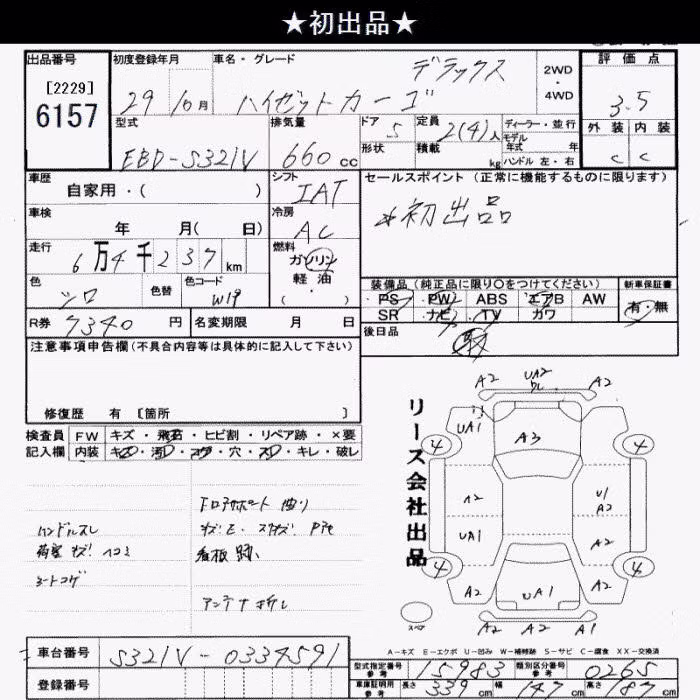 ★初出品★
出品番号
[2229]
6157
初度登録年月
29 10月
車名・グレード
デラックス
ハイゼットカーゴ
2WD
4WD
評価点
3.5
外装 内装
C C
型式
EBD-S321V
排気量
660 cc
ドア 5
形状
定員 2(4)人
積載 kg
ディーラー・並行
モデル
年式 年
ハンドル 左・右
車歴
自家用・( )
シフト
IAT
セールスポイント(正常に機能するものに限ります)
*初出品
車検
年 月( 日)
冷房
AC
走行
6万4千237km
燃料
ガソリン
軽油
( ・ )
色
シロ
色替
色コード
W19
装備品(純正品に限り○をつけてください)
PS PW ABS エアB AW
SR ナビ TV カワ
新車保証書
有・無
R券 7340円
名変期限 月 日
後日品
取
注意事項申告欄(不具合内容等は具体的に記入して下さい)
修復歴 有 [箇所 ]
検査員
記入欄
FW キズ・飛石・ヒビ割・リペア跡・×要
内装 キズ・汚レ・コゲ・穴・スレ・キレ・破レ
ハンドルスレ
荷室キズ!ヘコミ
シートコゲ
曲り
アンテナ折レ
リース会社出品
A2 UA2 A2
UA1
A3
4 4
A2 U1
A2
UA1 A2
4 4
A2 UA1 A2
A2 A2 A1
スペア
A-キズ E-エクボ U-凹み W-補修跡 S-サビ C-腐食 XX-交換済
車台番号
S321V-0334591
登録番号
型式指定番号
参考
15983
類別区分番号
参考
0265
車庫証明用
参考
長さ 339cm
幅 147cm
高さ 187cm